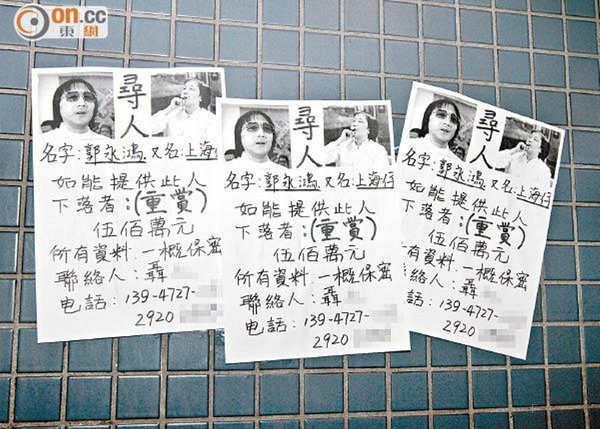 on.cc
東網
尋
人
名字：郭永鴻 又名：上海仔
如能提供此人
下落者：(重賞)
伍佰萬元
所有資料．一概保密
聯絡人：聶
电話：139-4727-
2920
尋
人
名字：郭永鴻 又名：上海仔
如能提供此人
下落者：(重賞)
伍佰萬元
所有資料．一概保密
聯絡人：聶
电話：139-4727-
2920
尋
人
名字：郭永鴻 又名：上海仔
如能提供此人
下落者：(重賞)
伍佰萬元
有資料．一概保密
聯絡人：聶
电話：139-4727-
2920